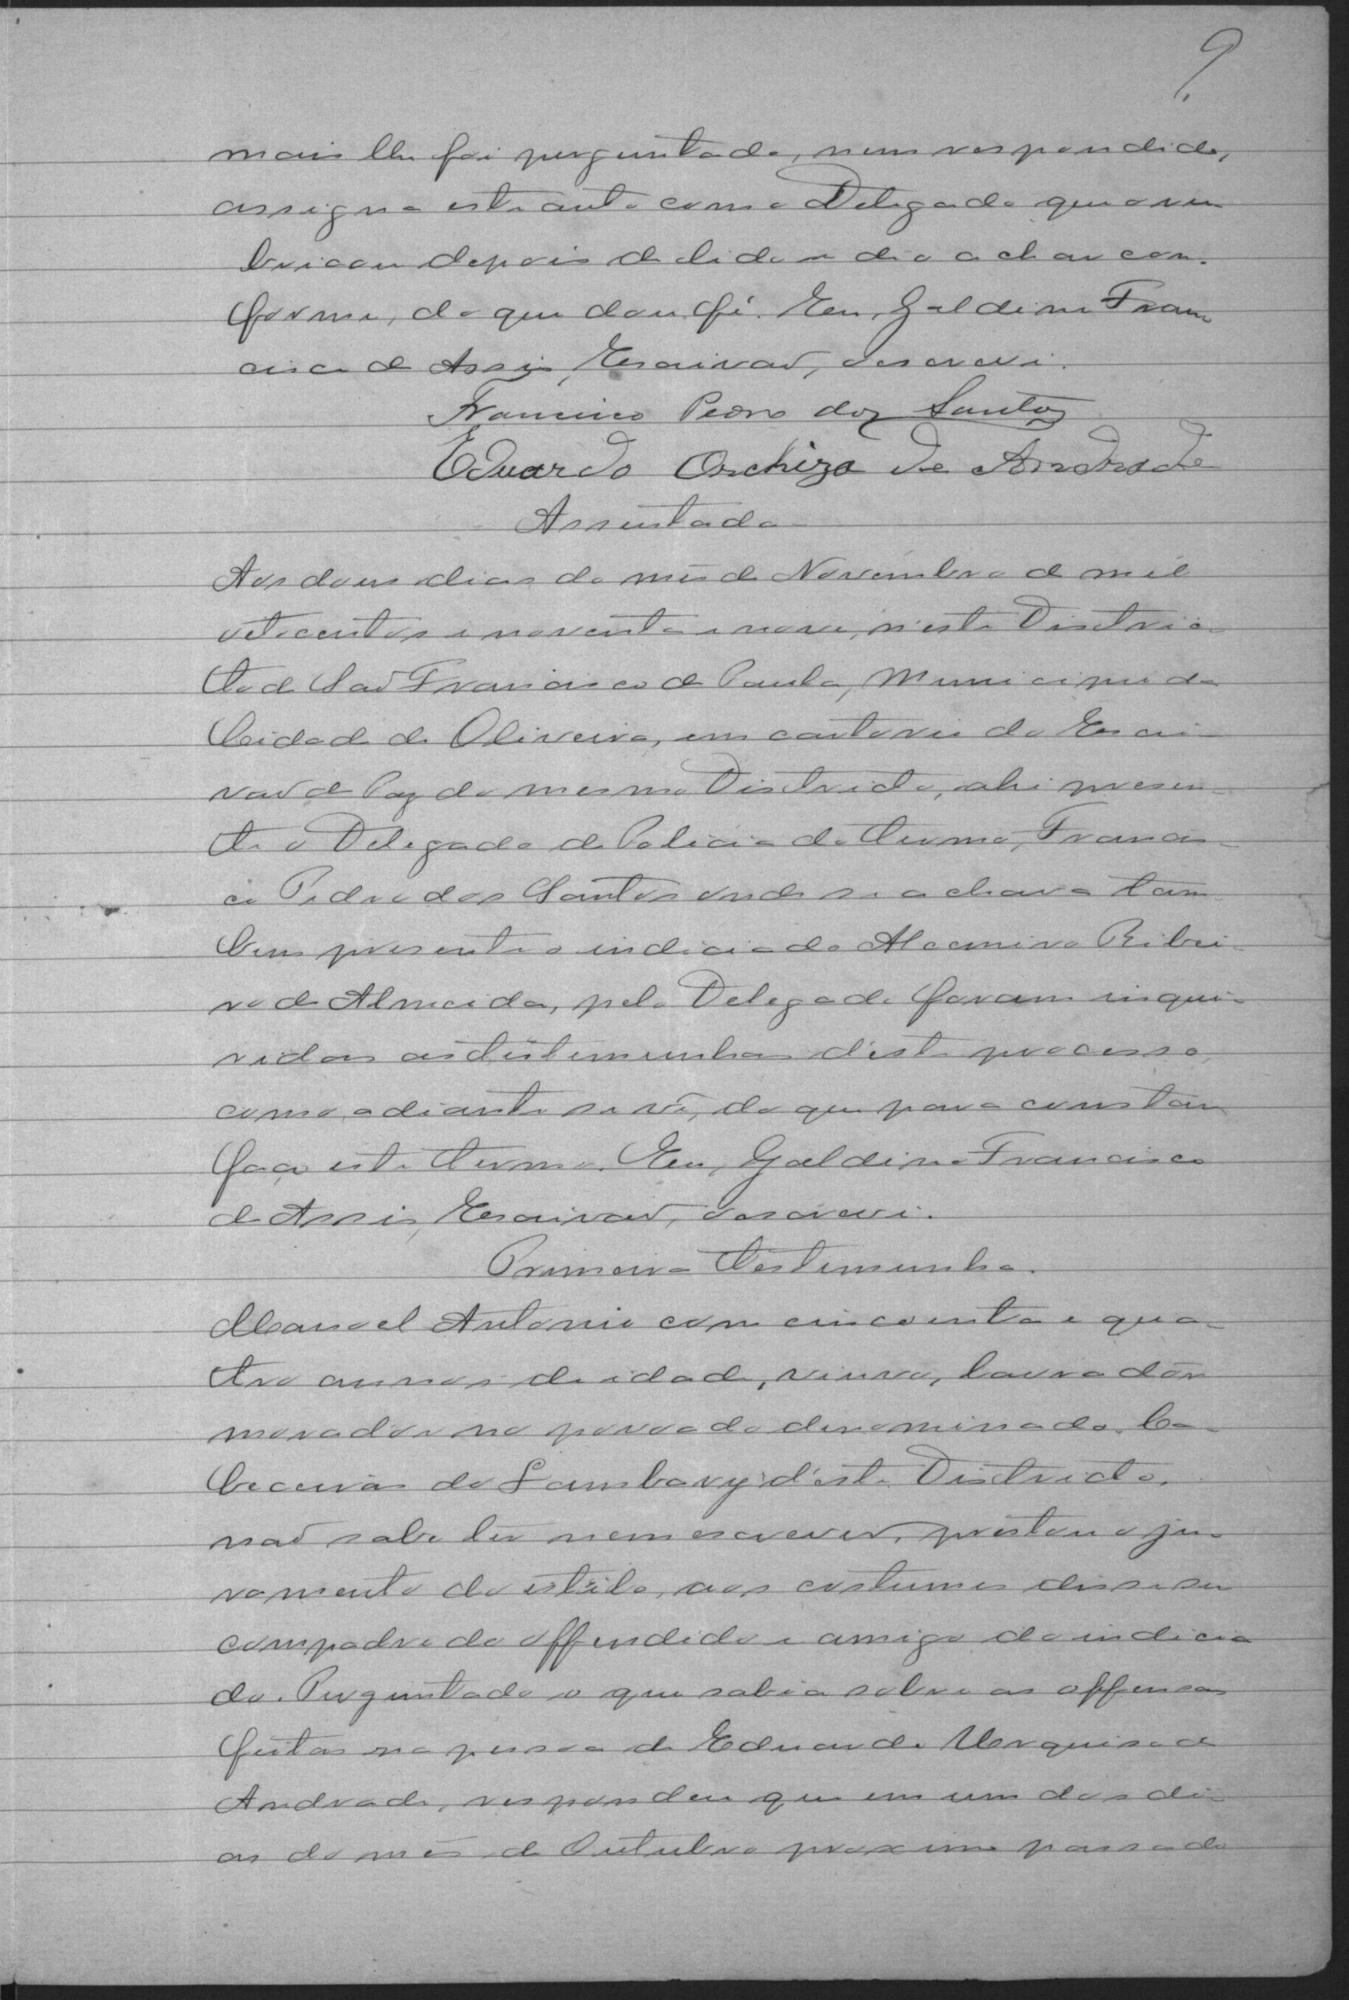 9
mais lhe foi perguntado, nem respondido,
assigna este auto com o Delegado que o ru
bricou depois de lido e dio achar con-
forme, do que dou fé. Eu, Galdino Fran
cisco de Assis, Escrivaõ, o escrevi.
Francisco Pedro dos Santos
Eduardo Orchiza de Andrade
Assentada
Aos dous dias do mes de Novembro de mil
oitocentos e noventa e nove, n'este Distric
to de Saõ Francisco de Paula, Municipio da
Cidade de Oliveira, em cartorio do Escri-
vaõ de Paz do mesmo Districto, ahi presen-
te o Delegado de Policia do termo, Francis-
co Pedro dos Santos onde se achava tam
bem presente o indiciado Alcemiro Ribei-
ro de Almeida, pelo Delegado foram inqui-
ridas as testemunhas d'este processo,
como adiante se vê, do que para constar
faço este termo. Eu, Galdino Francisco
de Assis, Escrivaõ, o escrevi.
Primeira testemunha.
Manoel Antonio com cincoenta e qua-
tro annos de idade, viuvo, lavrador
morador no povoado denominado Ca-
beceiras do Lambary d'este Districto,
naõ sabe ler nem escrever, prestou o ju-
ramento do estilo, aos costumes disse ser
compadre do offendido e amigo do indicia
do. Perguntado o que sabia sobre as offensas
feitas na pessoa de Eduardo Urquisa de
Andrade, respondeu que em um dos di-
as do mes de Outubro proximo passado